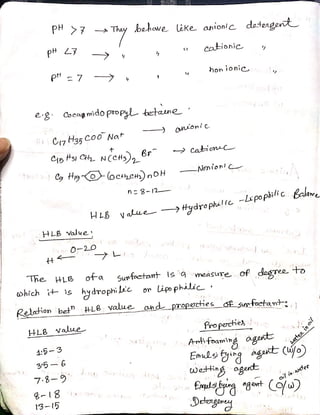 pH >7 → They behave like anionic detergent
pH <7 → " " " cationic "
pH = 7 → " " " non ionic "
e.g. Cocamidopropyl betaine.
C17 H35 COO⁻ Na⁺ → anionic
C15 H31 CH2 N⁺(CH3)2 Br⁻ → cationic
C9 H19 (OCH2CH2) n OH → Nonionic
n = 8-12
HLB value → Hydrophilic - Lipophilic Balance
HLB value:
0-20
H ← → L
The HLB of a surfactant is a measure of degree to
which it is hydrophilic or lipophilic.
Relation betⁿ HLB value and properties of surfactant:
HLB value Properties
1.5-3 Antifoaming agent
3.5-6 Emulsifying agent (W/O) water in oil
7-8-9 Wetting agent
8-18 Emulsifying agent (O/W) oil in water
13-15 Detergency